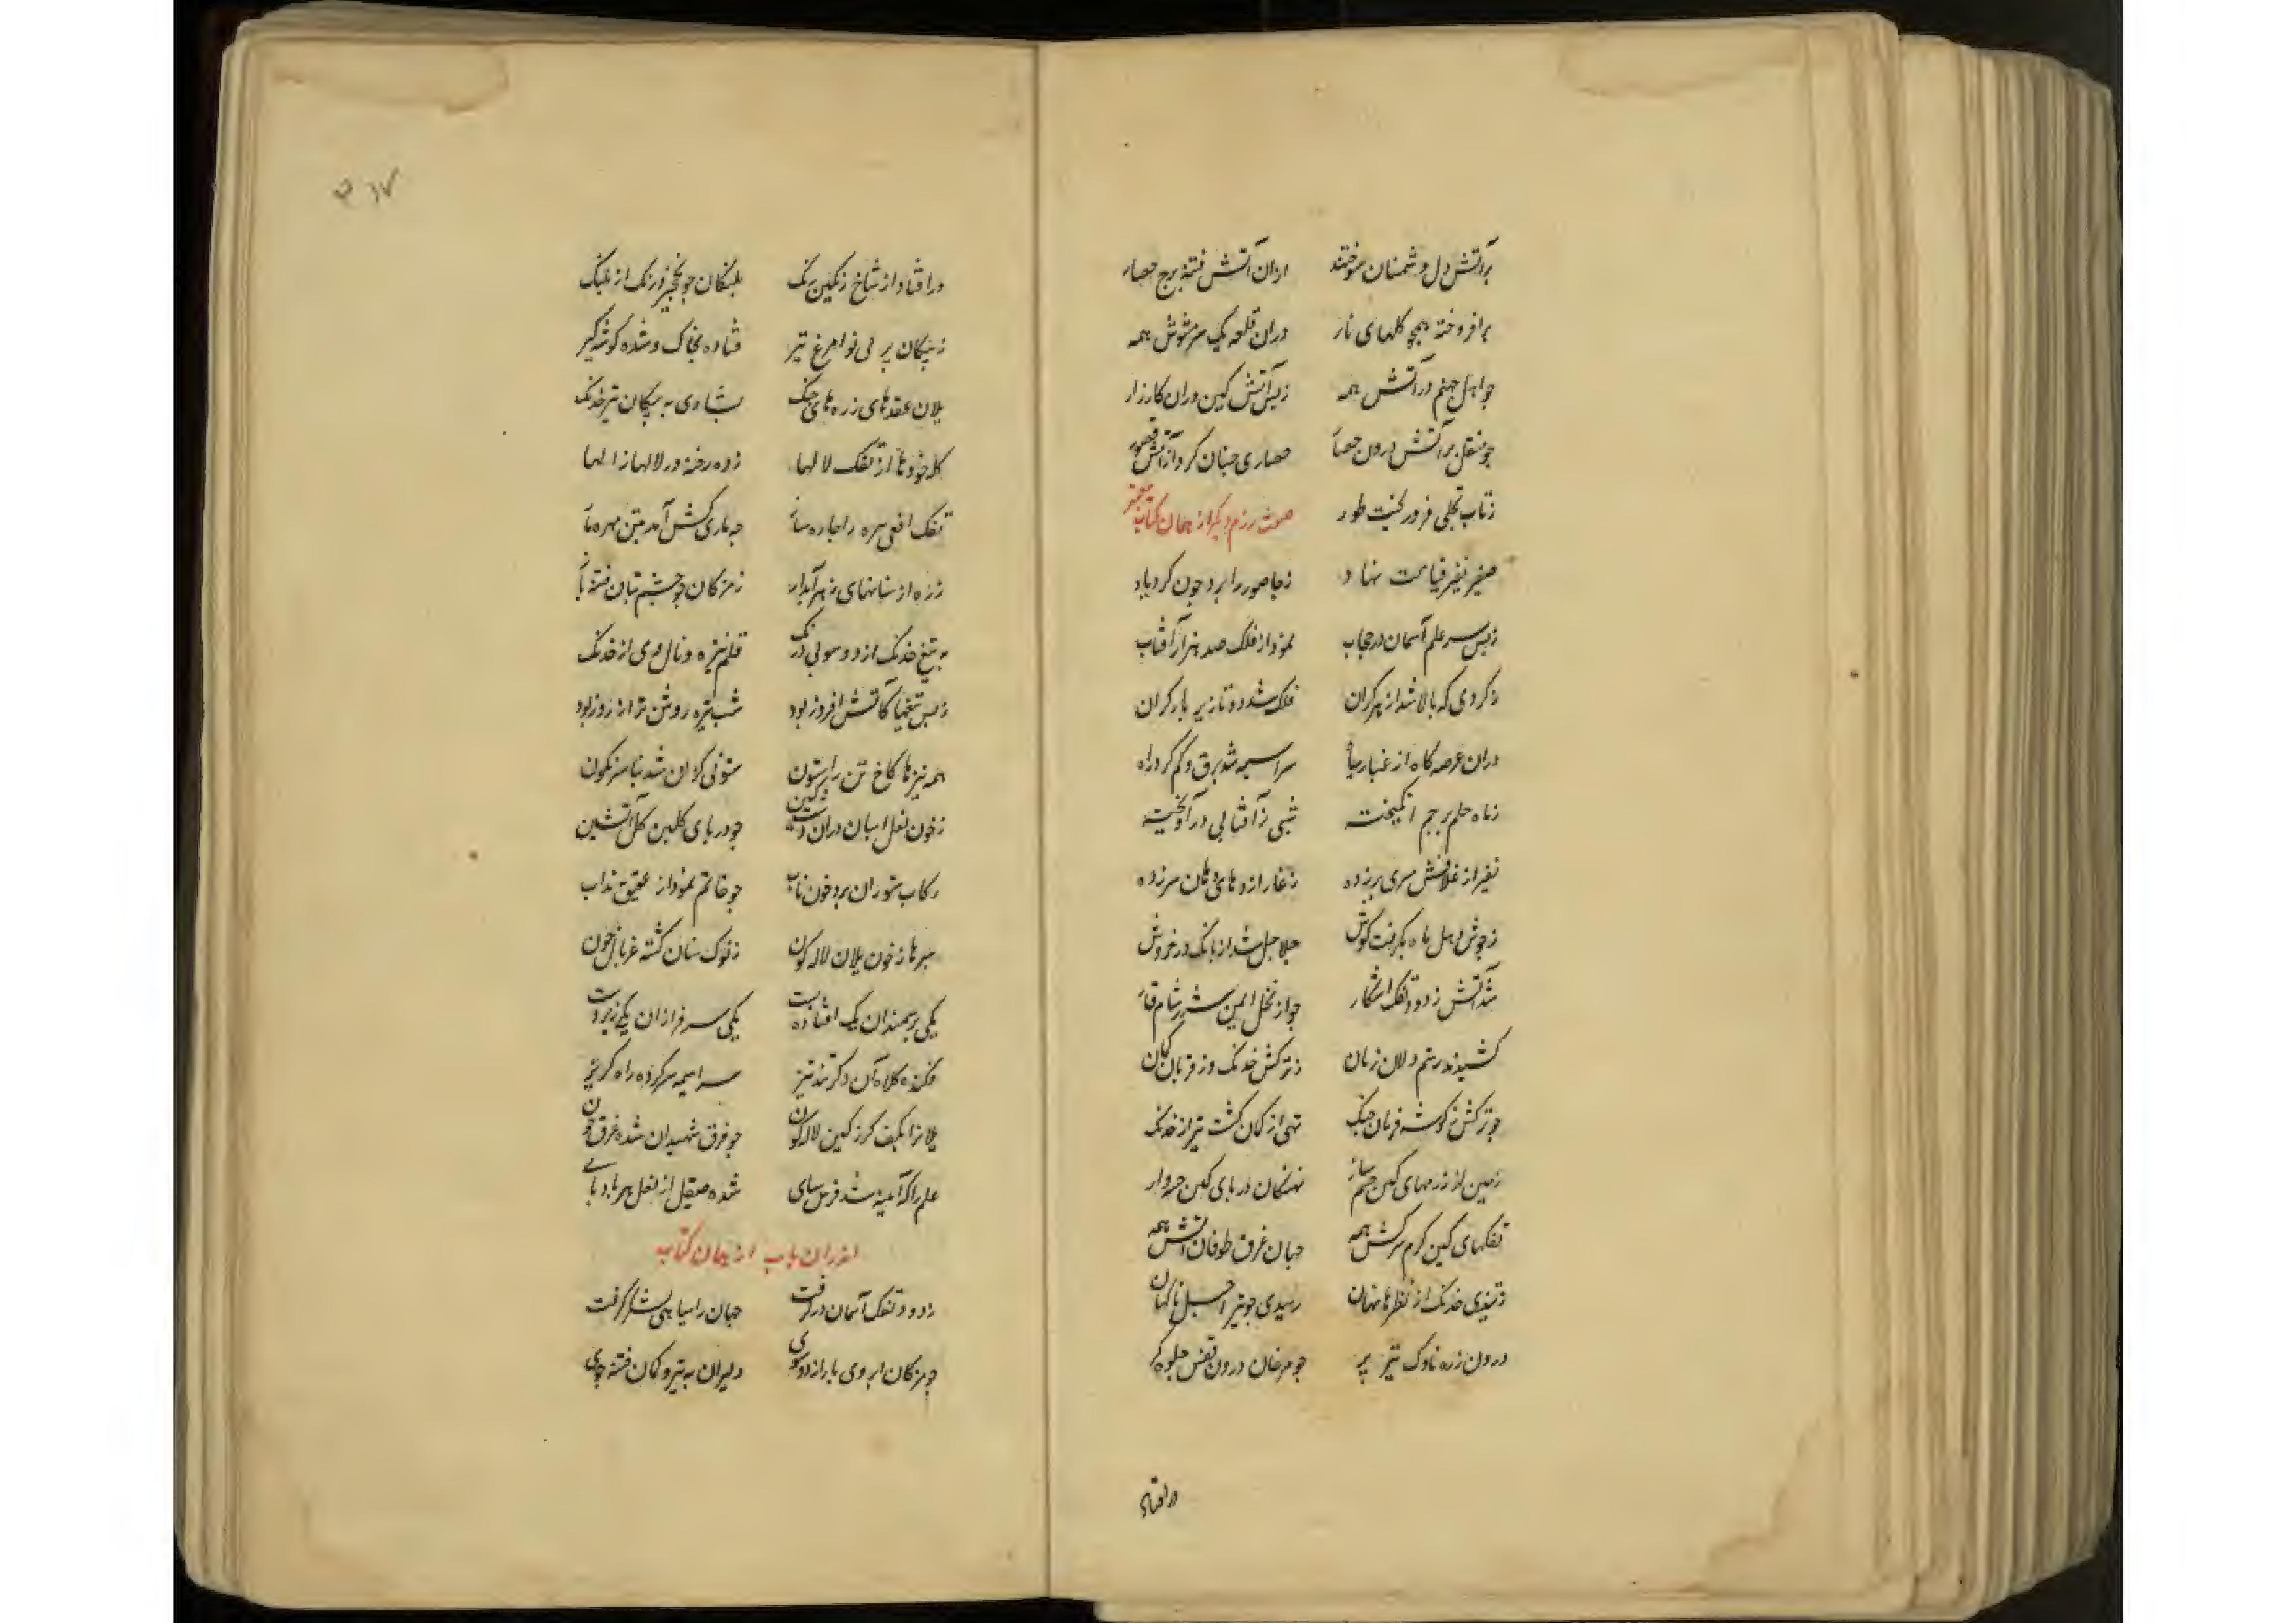 برآتش دل دشمنان سوختند ازان آتش فتنه برج حصار
برافروخته همچو کلهای نار دران قلعه یک سر مشوش همه
جو اهل جهنم در آتش همه زبس آتش کین دران کارزار
جو منقل پر آتش درون حصار حصاری جنان کرد از آتش قصور
زتاب تجلی فرو ریخت طور صفت رزم دیکر از همان کتاب
صفیر نفیر قیامت نهاد زجا صور را برد جون کردباد
زبس سر علم آسمان در حجاب نمود از فلک صد هزار آفتاب
زکردی که بالا شد از هر کران فلک شد دوتا زیر بار کران
دران عرصه کاه از غبار سیاه سراسیمه شد برق و کم کرد راه
زماه علم پرجم انکیخته شبی ز آفتابی در آویخته
نفیر از غلافش سری برزده زغار اژدهای دمان سرزده
زجوش دهل ماه بکرفت کوش جلاجل شد از بانک در خروش
شد آتش زدود تفک آشکار جو از نخل ایمن شرر شام تار
کشیدند رستم دلان زمان زترکش خدنک وز قربان کمان
جو ترکش ز کوشه قربان جنک تهی از کمان کشت تیر از خدنک
زمین از زرههای کین جشمه سار نهنکان دریای کین
تفکهای کین کرم سرکش همه جهان غرق طوفان آتش همه
زتندی خدنک از نظرها نهان رسیدی جو تیر اجل ناکهان
درون زره ناوک تیز پر جو مرغان درون قفس جلوه کر
درافتاد
۳۱۷
درافتاد از شاخ رنکین برنک پلنکان جو نخجیر
زپیکان پر بی نوا مرغ تیر فتاده بخاک و شده کوشه کیر
یلان عقدهای زره های جنک بشادی به پیکان تیر خدنک
کل خودها از تفک لالها زده رخنه در لالها ژالها
تفک افعی مهره
زره از سنانهای زهر آبدار زمژکان جو جشم بتان فتنه بار
به تیغ خدنک از دو سو بی درنک قلم نیزه و نال وی از خدنک
زبس تیغها کاتش افروز بود شب تیره روشن تر از روز بود
همه نیزها کاخ تن را ستون ستونی کزان شد بنا سرنکون
زخون نعل اسپان دران دشت کین جو در پای کلبن کل آتشین
رکاب ستوران پر خون ناب جو خاتم نمود از عقیق مذاب
سپرها زخون یلان لاله کون زنوک سنان کشته غربال خون
یکی بر سمندان یک افتاده پست یکی سرفرازان یکی زیردست
فکنده کلاه آن دکر تند تیز سراسیمه سر کرده راه کریز
یلانرا بکف کرز کین لاله کون جو فرق شهیدان شده غرق خون
علم را که آیینه شد فرق سای شده صیقل از نعل هر بادپای
اندران باب از همان کتاب
زدود تفک آسمان درکرفت جهان را سیاهی لشکر کرفت
جو مژکان ابروی یار از دو سوی دلیران به تیر و کمان فتنه جوی